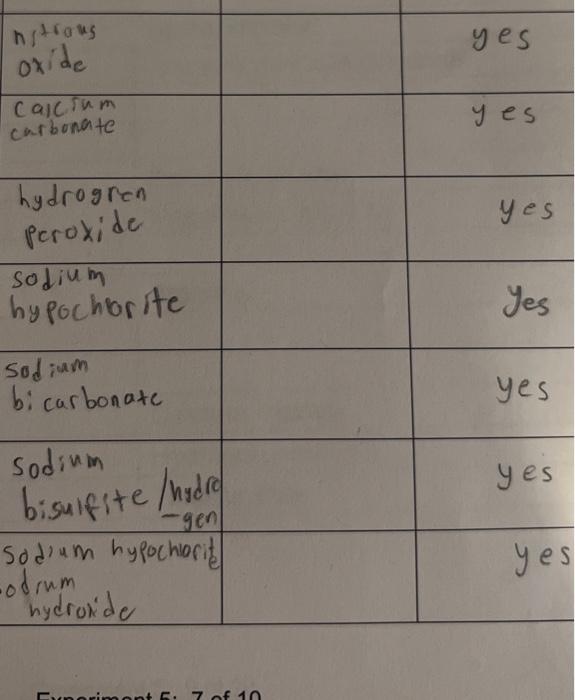 nitrous yes
oxide
calcium yes
carbonate
hydrogren yes
peroxide
sodium
hypochlorite yes
sodium
bicarbonate yes
sodium yes
bisulfite /hydro
-gen
sodium hypochlorite yes
hydroxide
Experiment 5: 7 of 10